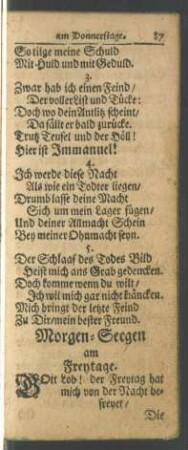 am Donnerstage. 87
So tilge meine Schuld
Mit Huld und mit Geduld.
3.
Zwar hab ich einen Feind/
Der voller List und Tücke:
Doch wo dein Antlitz scheint/
Da fällt er bald zurücke.
Trutz Teufel und der Höll!
Hier ist Immanuel!
4.
Ich werde diese Nacht
Als wie ein Todter liegen/
Drum lasse deine Macht
Sich um mein Lager fügen/
Und deiner Allmacht Schein
Bey meiner Ohnmacht seyn.
5.
Der Schlaaf des Todes Bild
Heist mich ans Grab gedencken.
Doch komme wenn du wilt/
Ich will mich gar nicht kräncken.
Mich bringt der letzte Feind
Zu Dir/mein bester Freund.
Morgen-Seegen
am
Freytage.
GOtt Lob! der Freytag hat
mich von der Nacht be-
freyet/
Die